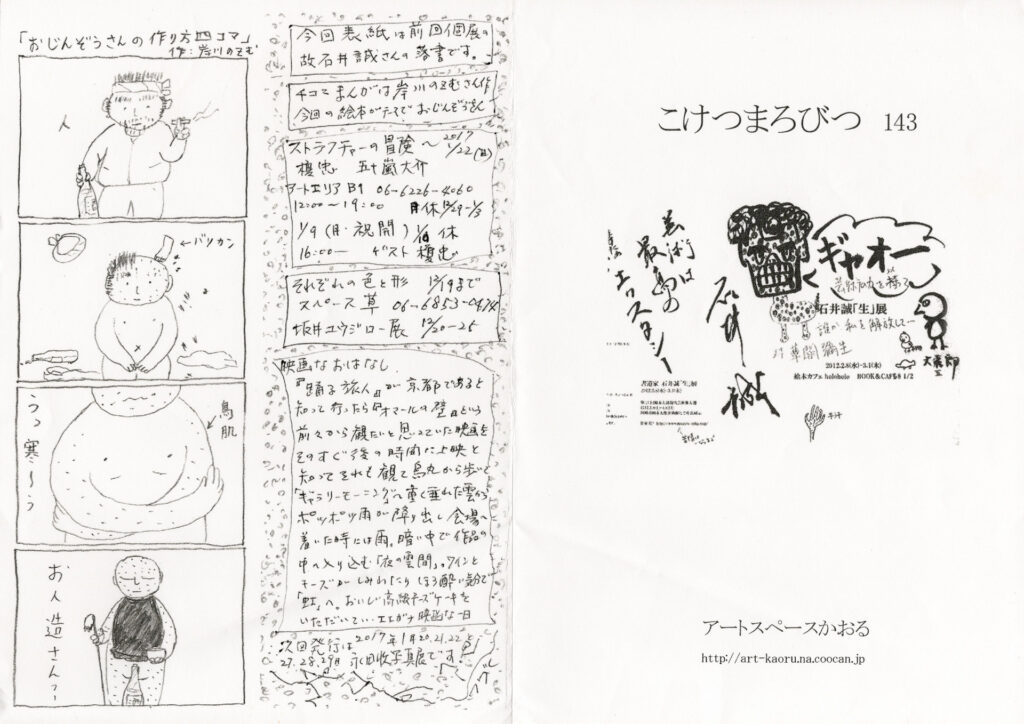 「おじんぞうさんの作り方四コマ」
作:岸川のぞむ
人
←バリカン
鳥肌
うっ寒〜う
お人造さんっ
今回表紙は前回個展の
故石井誠さんの落書です。
チコミまんがは岸川のぞむさん作
今回の絵本がたるでおじんぞうさん
ストラクチャーの冒険〜2017
1/22(日)
榎忠 五十嵐大介
アートエリアB1 06-6226-4060
12:00〜19:00 休12/29-1/3
1/9(月・祝開) 1/10休
16:00― ゲスト榎忠
それぞれの色と形 12/19まで
スペース草 06-6853-0474
坂井ユウジロー展 12/20-25
映画なおはなし
『踊る旅人』が京都であると
知って行ったら『オマールの壁』という
前々から観たいと思っていた映画を
そのすぐ後の時間に上映と
知ってそれも観て烏丸から歩いて
「ギャラリーモーニング」へ重く垂れた雲から
ポツポツ雨が降り出し会場へ
着いた時には雨。暗い中で作品の
中へ入り込む「夜の雲間」。ワインと
チーズがしみわたりほろ酔い気分で
「虹」へ。おいしい高級チーズケーキを
いただいてい・エエガナ映画な一日
次回発行は2017年1月20.21.22と
27.28.29日 永田收写真展です。
こけつまろびつ 143
芸術は
最高の
エクスタシー
石井誠
ギャオー
石井誠「生」展
誰か私を解放して…
2012.2.8(水)-3.1(木)
絵本カフェ holoholo BOOK&CAFE
書道家 石井誠「生」展
アートスペースかおる
http://art-kaoru.na.coocan.jp